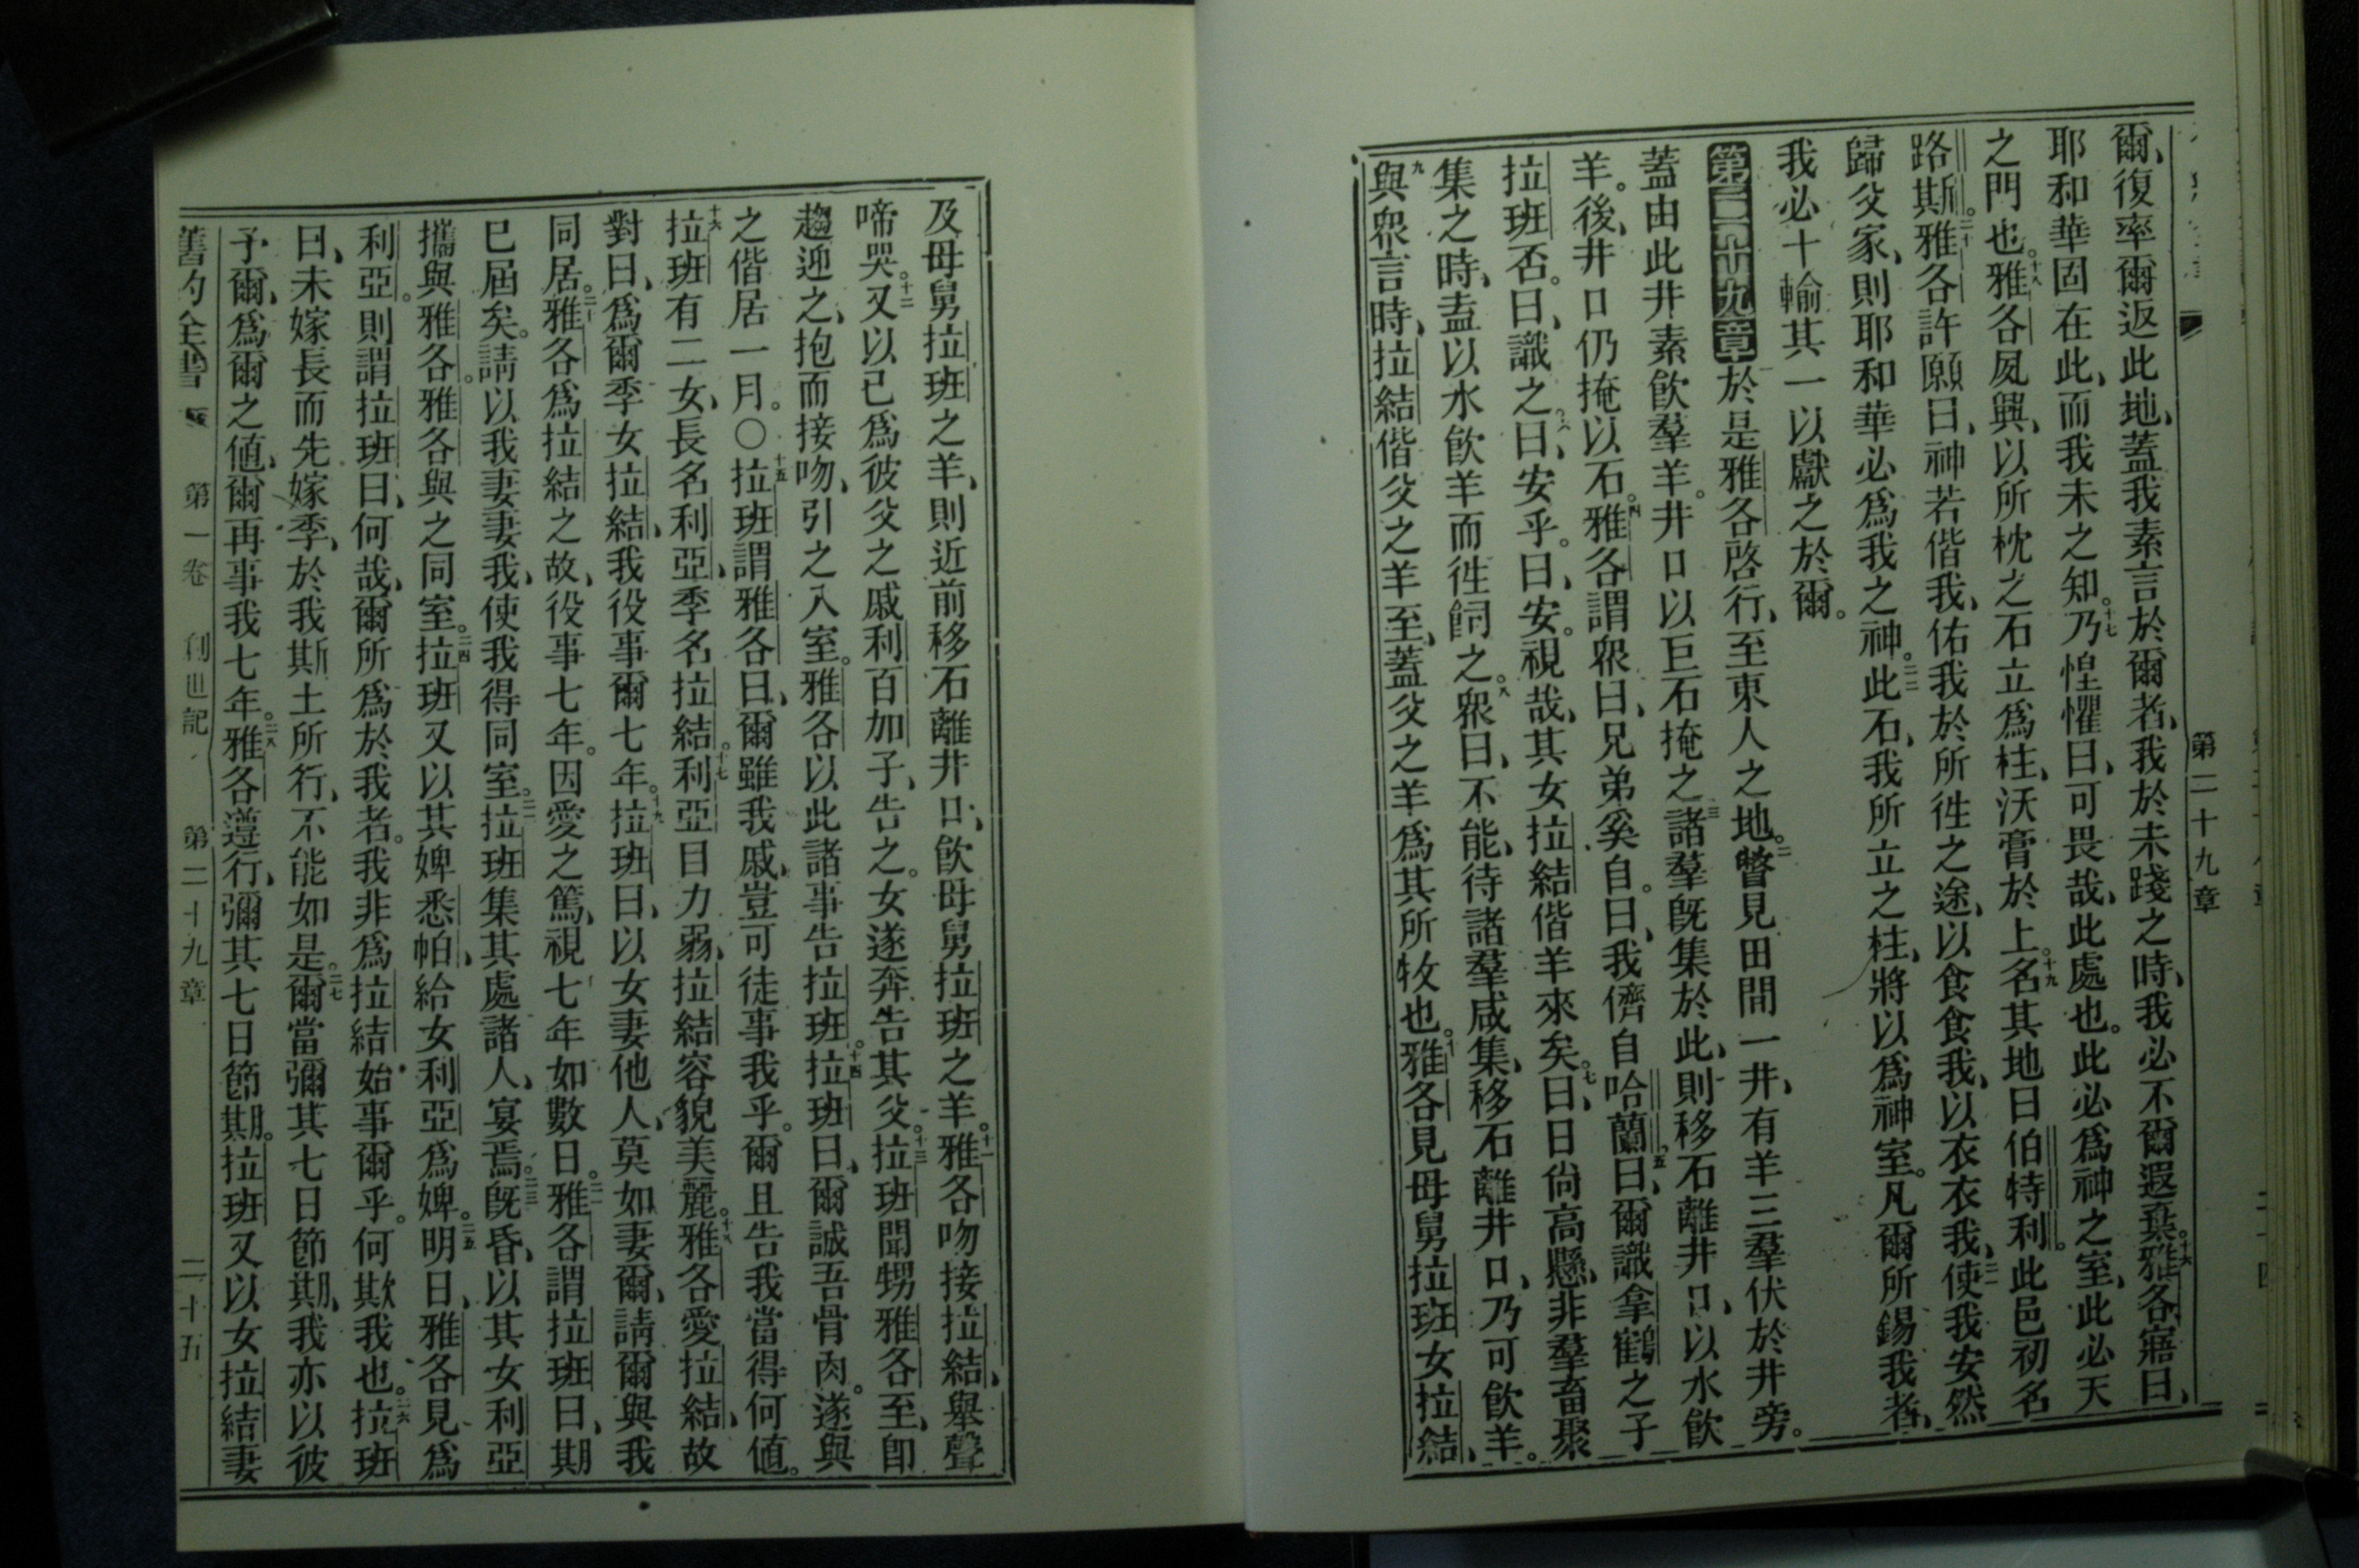 爾、復率爾返此地、蓋我素言於爾者、我於未踐之時、我必不爾遐棄。十六雅各寤曰、
耶和華固在此、而我未之知。十七乃惶懼曰、可畏哉、此處也。此必爲神之室、此必天
之門也。十八雅各夙興、以所枕之石立爲柱、沃膏於上。十九名其地曰伯特利。此邑初名
路斯。二十雅各許願曰、神若偕我、佑我於所徃之途、以食食我、以衣衣我、二一使我安然
歸父家、則耶和華必爲我之神。二二此石、我所立之柱、將以爲神室。凡爾所錫我者、
我必十輸其一以獻之於爾。
第二十九章於是雅各啓行、至東人之地。二瞥見田間一井、有羊三羣伏於井旁。
蓋由此井素飮羣羊。井口以巨石掩之三諸羣旣集於此、則移石離井口、以水飮
羊。後、井口仍掩以石。四雅各謂衆曰、兄弟奚自。曰、我儕自哈蘭。五曰、爾識拿鶴之子
拉班否。曰、識之。六曰、安乎。曰、安。視哉、其女拉結偕羊來矣。七曰、日尙高懸、非羣畜聚
集之時、盍以水飮羊而徃飼之。八衆曰、不能、待諸羣咸集、移石離井口、乃可飮羊。
九與衆言時、拉結偕父之羊至、蓋父之羊爲其所牧也。十雅各見母舅拉班女拉結、
第二十九章
及母舅拉班之羊、則近前移石離井口、飮母舅拉班之羊。十一雅各吻接拉結、舉聲
啼哭。十二又以己爲彼父之戚利百加子、告之。女遂奔告其父。十三拉班聞甥雅各至、卽
趨迎之、抱而接吻、引之入室。雅各以此諸事告拉班。十四拉班曰、爾誠吾骨肉。遂與
之偕居一月。〇十五拉班謂雅各曰、爾雖我戚、豈可徒事我乎。爾且告我當得何値。
十六拉班有二女、長名利亞、季名拉結。十七利亞目力弱、拉結容貌美麗。十八雅各愛拉結、故
對曰、爲爾季女拉結、我役事爾七年。十九拉班曰、以女妻他人、莫如妻爾、請爾與我
同居。二十雅各爲拉結之故、役事七年。因愛之篤、視七年如數日。二一雅各謂拉班曰、期
已屆矣。請以我妻妻我、使我得同室。二二拉班集其處諸人、宴焉。二三旣昏、以其女利亞
攜與雅各。雅各與之同室。二四拉班又以其婢悉帕、給女利亞爲婢。二五明日、雅各見爲
利亞。則謂拉班曰、何哉、爾所爲於我者。我非爲拉結始事爾乎。何欺我也。二六拉班
曰、未嫁長而先嫁季、於我斯土所行、不能如是。二七爾當彌其七日節期、我亦以彼
予爾、爲爾之値、爾再事我七年。二八雅各遵行、彌其七日節期。拉班又以女拉結妻
舊約全書 第一卷 創世記 第二十九章 二十五